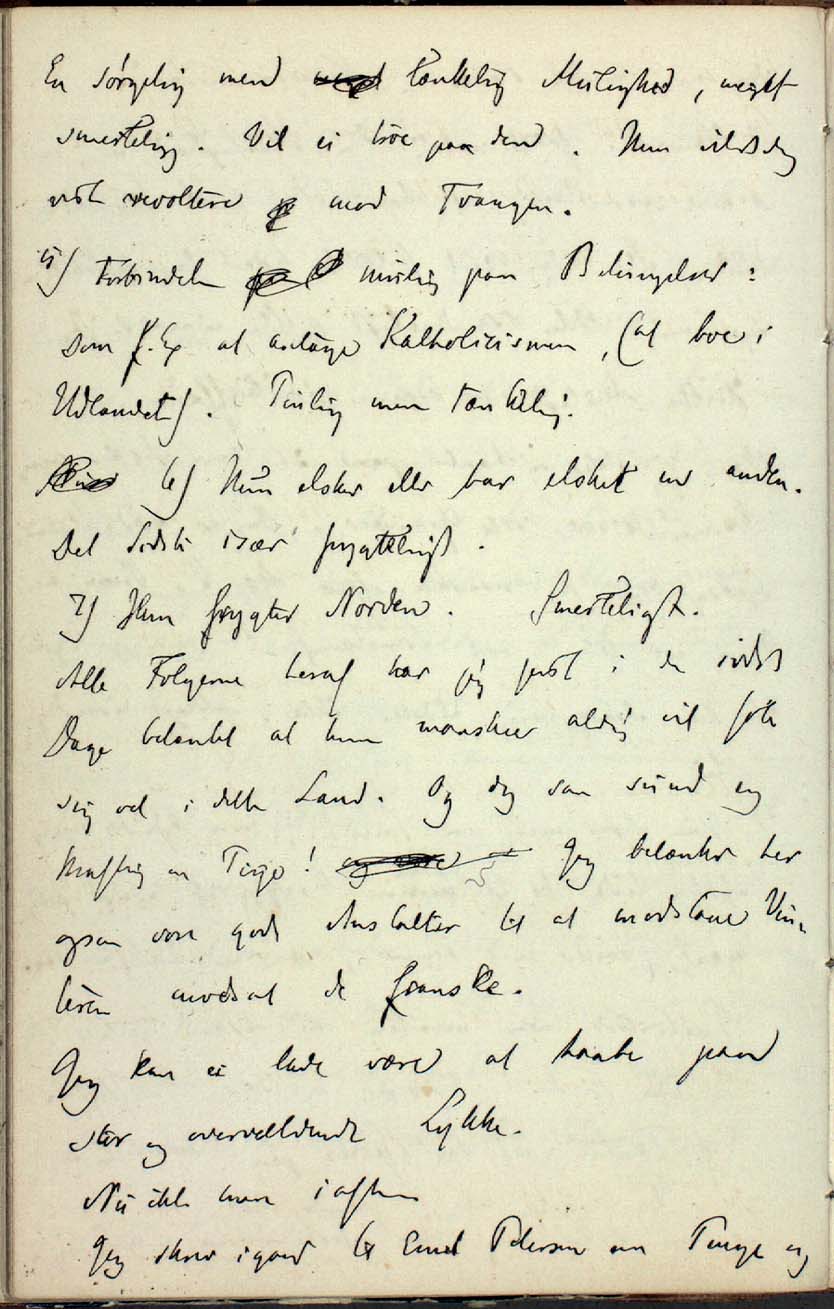 En sørgelig men tænkelig Mulighed, meget
smertelig. Vil ei troe paa den. Hun vilde dog
vist revoltere mod Tvangen.
5) Forbindelsen mulig paa Betingelser:
som f. Ex at antage Katholicismen, (at boe i
Udlandet). Pinlig men tænkelig.
6) Hun elsker eller har elsket en anden.
Det sidste især frygteligt.
7) Hun frygter Norden. Smerteligt.
Alle Følgerne heraf har jeg først i de sidste
Dage betænkt at hun maaskee aldrig vil føle
sig vel i dette Land. Og dog saa sund og
kraftig en Pige! Jeg betænker her
ogsaa vore gode Anstalter til at modstaae Vin-
teren modsat de franske.
Jeg kan ei lade være at haabe paa
stor og overvældende Lykke.
Nu ikke mere i aften
Jeg skrev igaar til Emil Petersen om Penge og